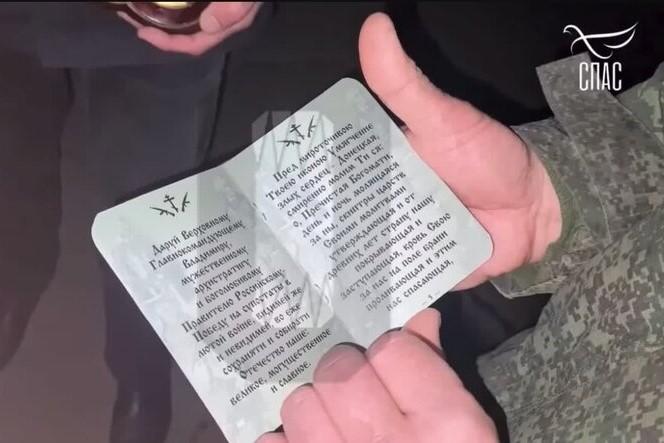 СПАС
Даруй Верховному
Главнокомандующему
Владимиру,
мужественному
архистратигу
и боголюбивому
Правителю Российскому.
Победу на супостаты в
лютой войне, видимей же
и невидимей, во еже
сохранити и собирати
Отечество наше:
великое, могущественное
и славное.
Пред мироточивою
Твоею иконою Умягчение
злых сердец - Донецкая,
смиренно молим Ти ся:
о, Пречистая Богомати,
день и ночь молящаяся
за ны, скиптры царств
Своими молитвами
утверждающая и от
древних лет страну нашу
покрывающая и
заступающая, кровь Свою
за нас на поле брани
проливающая и этим
нас спасающая,
– 5 –